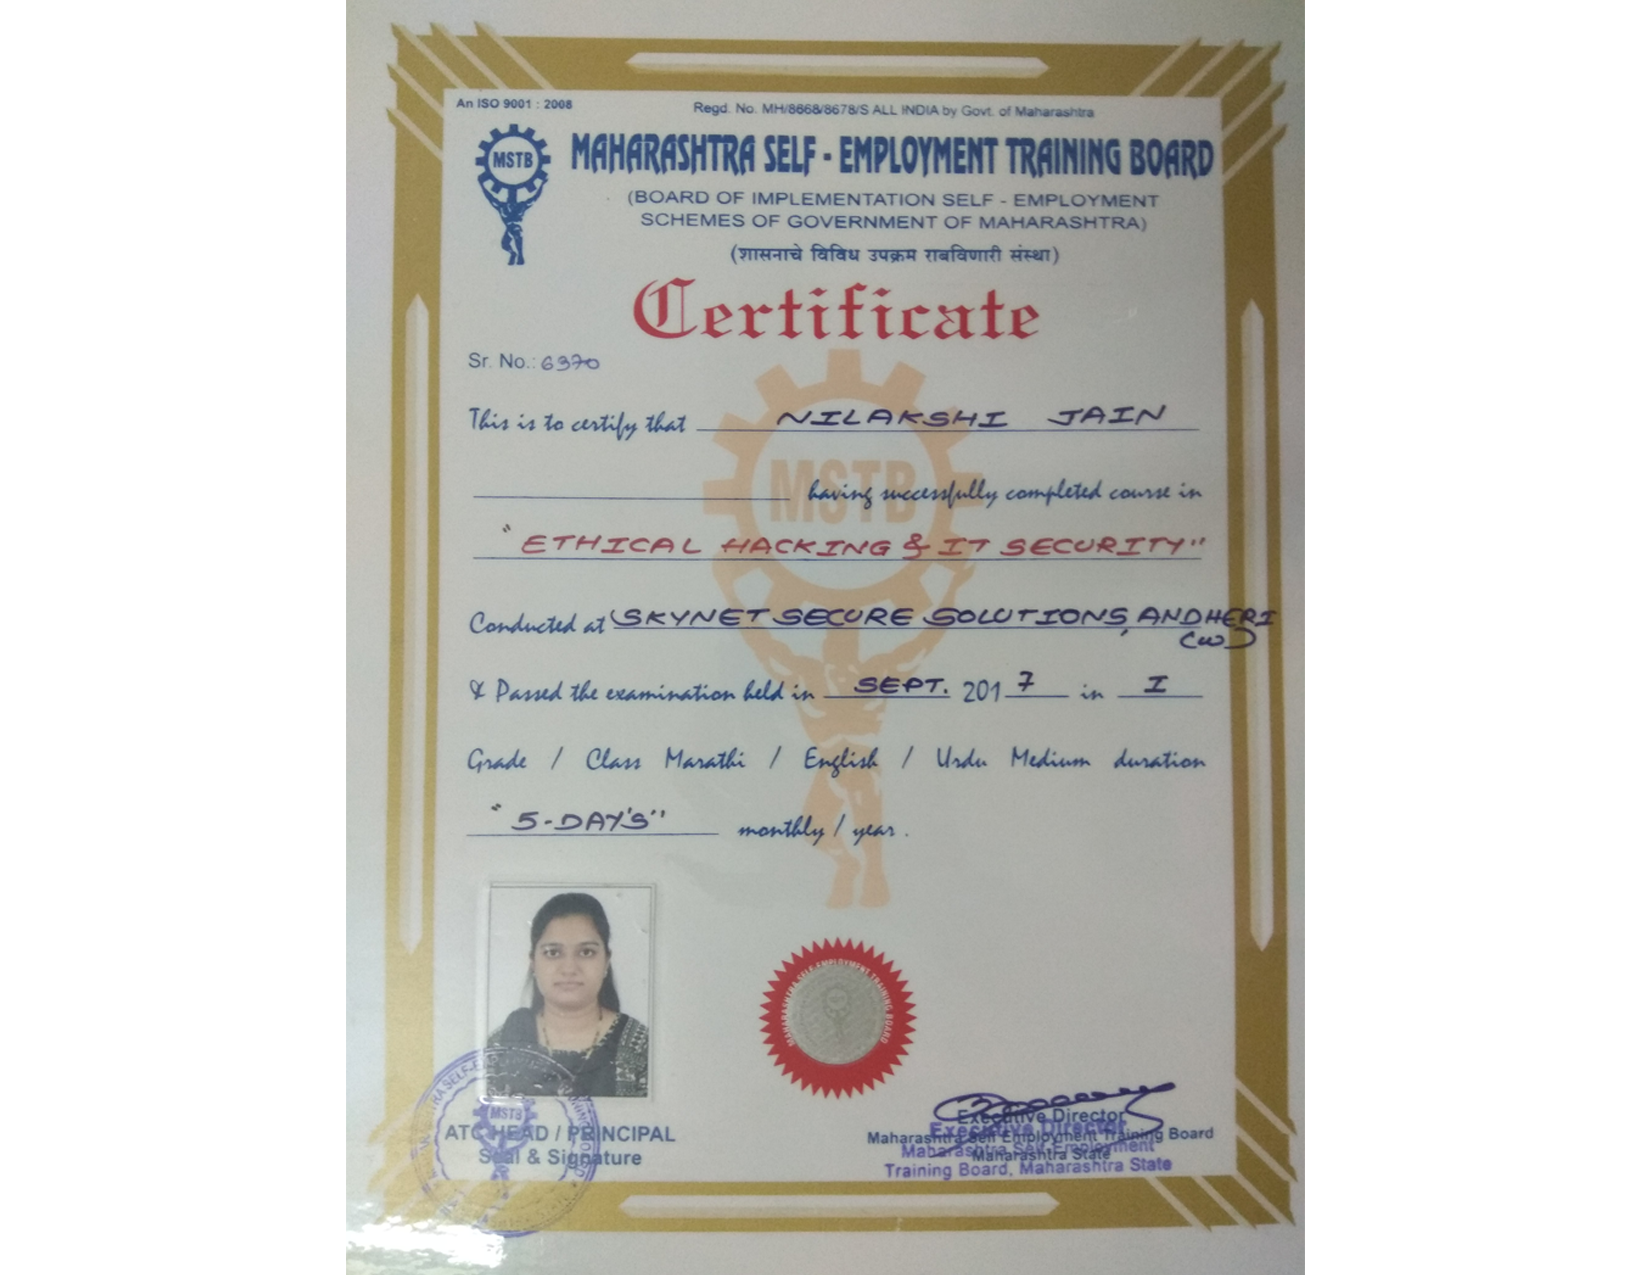 An ISO 9001 : 2008
Regd. No. MH/8668/8678/S ALL INDIA by Govt. of Maharashtra
MSTB
MAHARASHTRA SELF - EMPLOYMENT TRAINING BOARD
(BOARD OF IMPLEMENTATION SELF - EMPLOYMENT
SCHEMES OF GOVERNMENT OF MAHARASHTRA)
(शासनाचे विविध उपक्रम राबविणारी संस्था)
Certificate
Sr. No.: 6370
This is to certify that NILAKSHI JAIN
MSTB
having successfully completed course in
"ETHICAL HACKING & IT SECURITY"
Conducted at SKYNET SECURE SOLUTIONS, ANDHERI
(W)
& Passed the examination held in SEPT. 2017 in I
Grade / Class Marathi / English / Urdu Medium duration
"5-DAY'S" monthly / year .
MAHARASHTRA SELF-EMPLOYMENT TRAINING BOARD
MSTB
ATC HEAD / PRINCIPAL
Seal & Signature
Executive Director
Maharashtra Self Employment Training Board
Maharashtra State
Executive Director
Maharashtra Self-Employment
Training Board, Maharashtra State